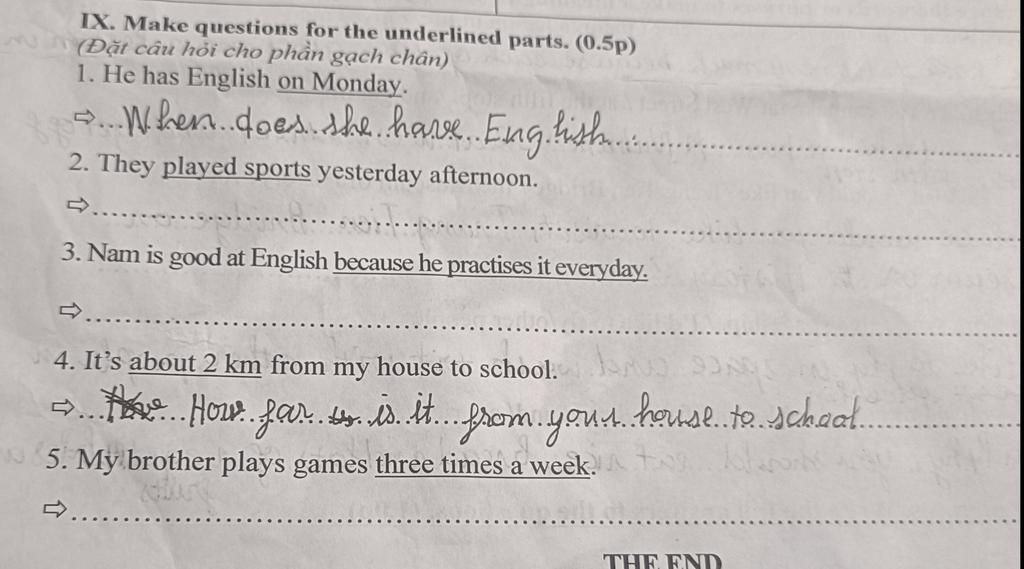 IX. Make questions for the underlined parts. (0.5p)
(Đặt câu hỏi cho phần gạch chân)
1. He has English on Monday.
⇨...When..does..she..have..English......................
2. They played sports yesterday afternoon.
⇨......................................................
3. Nam is good at English because he practises it everyday.
⇨......................................................
4. It's about 2 km from my house to school.
⇨... How..far... is..it...from.your..house..to..school..........
5. My brother plays games three times a week.
⇨......................................................
THE END